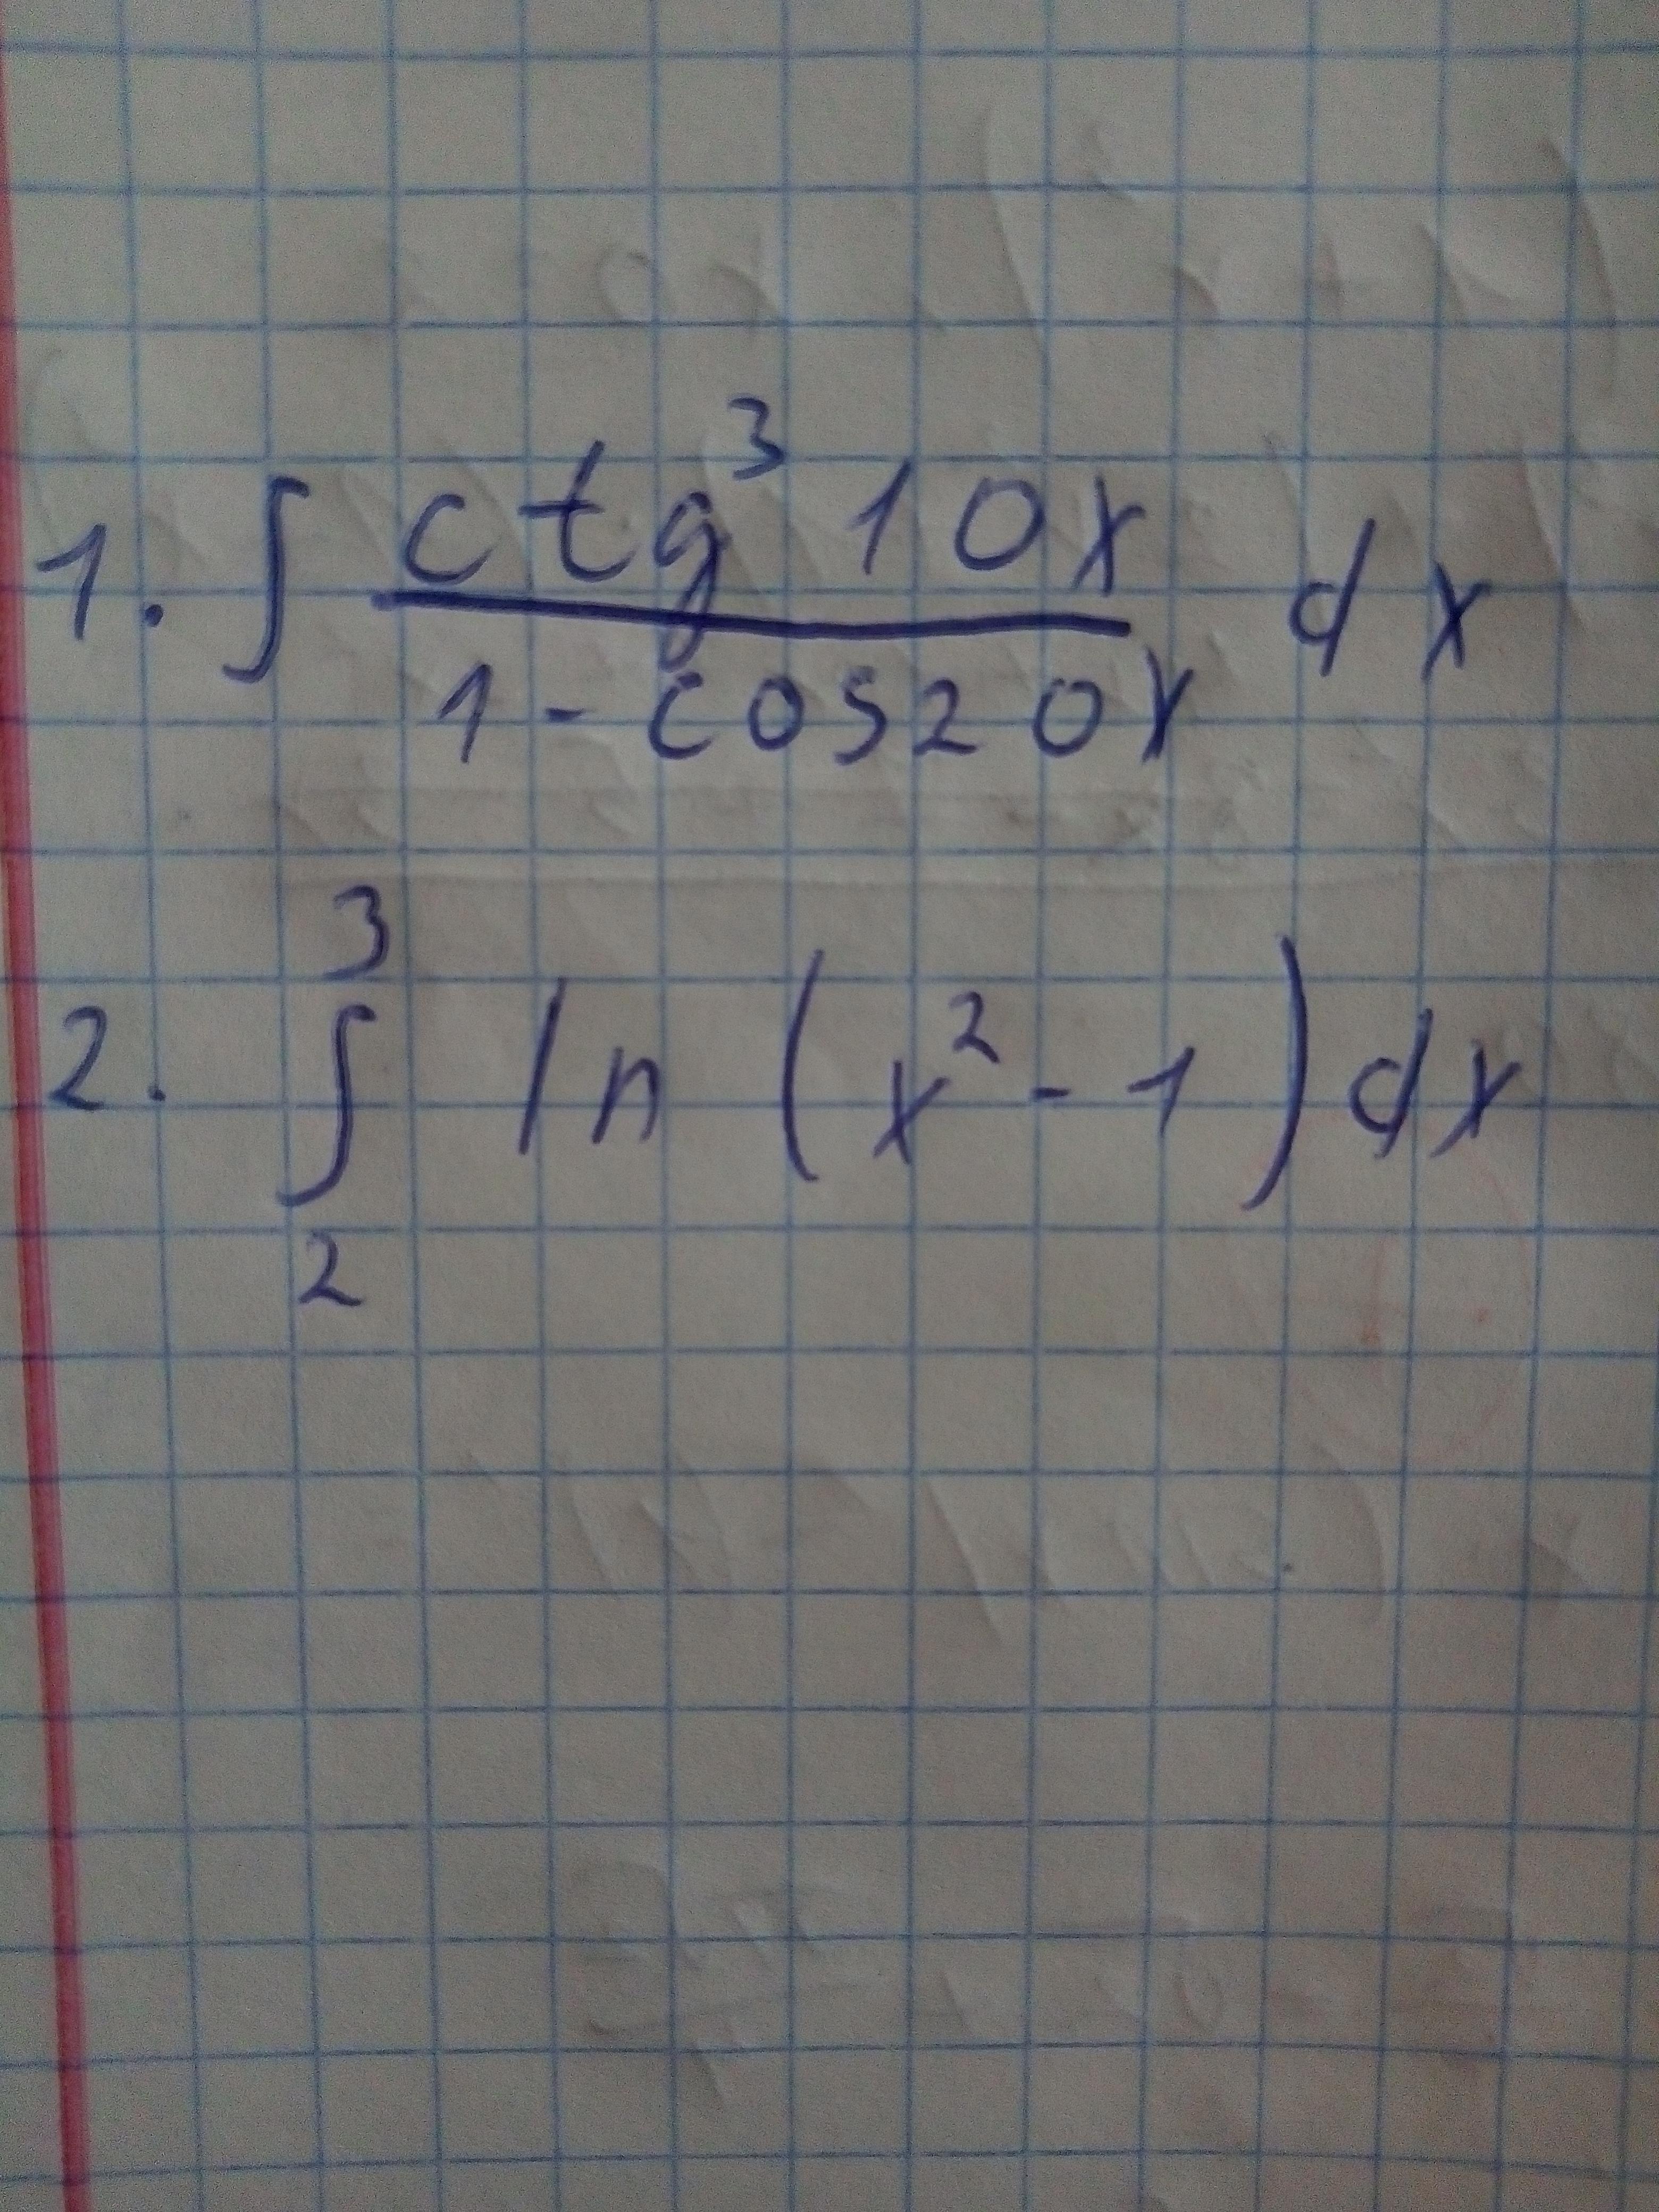 1. ∫ ctg³ 10x / 1 - cos20x dx
2. ∫₂³ ln (x² - 1) dx